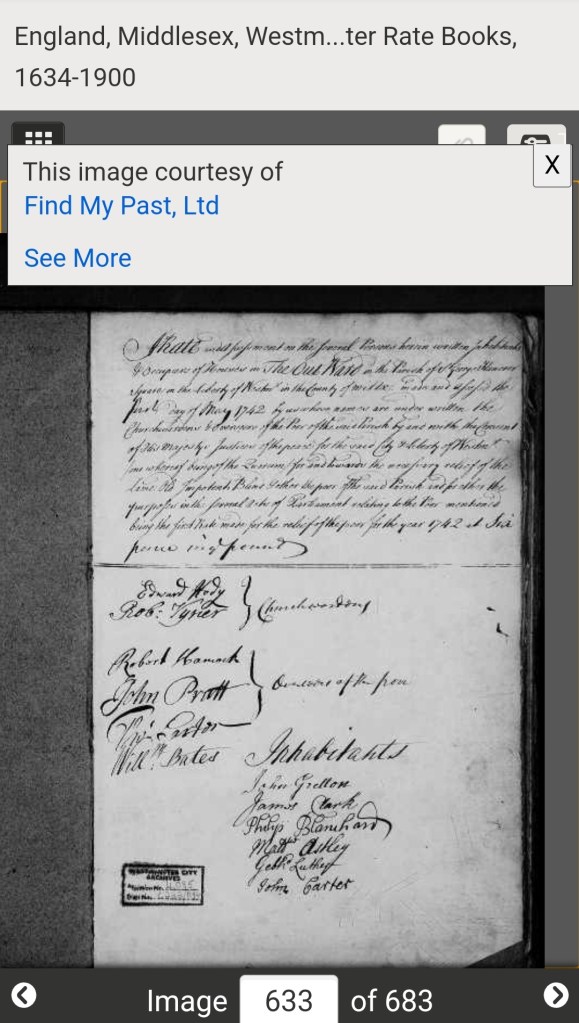 England, Middlesex, Westm...ter Rate Books,
1634-1900
This image courtesy of
X
Find My Past, Ltd
See More
A Rate or assessment on the several Persons herein written Inhabitants
& Occupiers of Houses in The Out Ward in the Parish of St George Hanover
Square in the Liberty of Westmr in the County of Middx. made and assessed the
first day of May 1742 by us whose names are under written the
Churchwardens & Overseers of the Poor of the said Parish by and with the Consent
of His Majestys Justices of the peace for the said City & Liberty of Westmr
one whereof being of the Quorum for and towards the necessary relief of the
Lame Old Impotent Blind & other the poor of the said Parish and for other the
purposes in the several Acts of Parliament relating to the Poor mentioned
being the first Rate made for the relief of the poor for the year 1742 at Six
pence in ye pound
Edward Hody
Rob: Tyner
Churchwardens
Robert
John Pratt
Overseers of the poor
Carter
Willm Bates
Inhabitants
John
James Clark
Philip Blanchard
Matt Astley
John Carter
WESTMINSTER CITY
ARCHIVES
Image 633 of 683